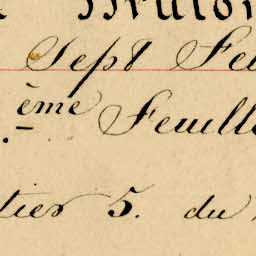 Sept Feu
ème Feuille
tier 5. du